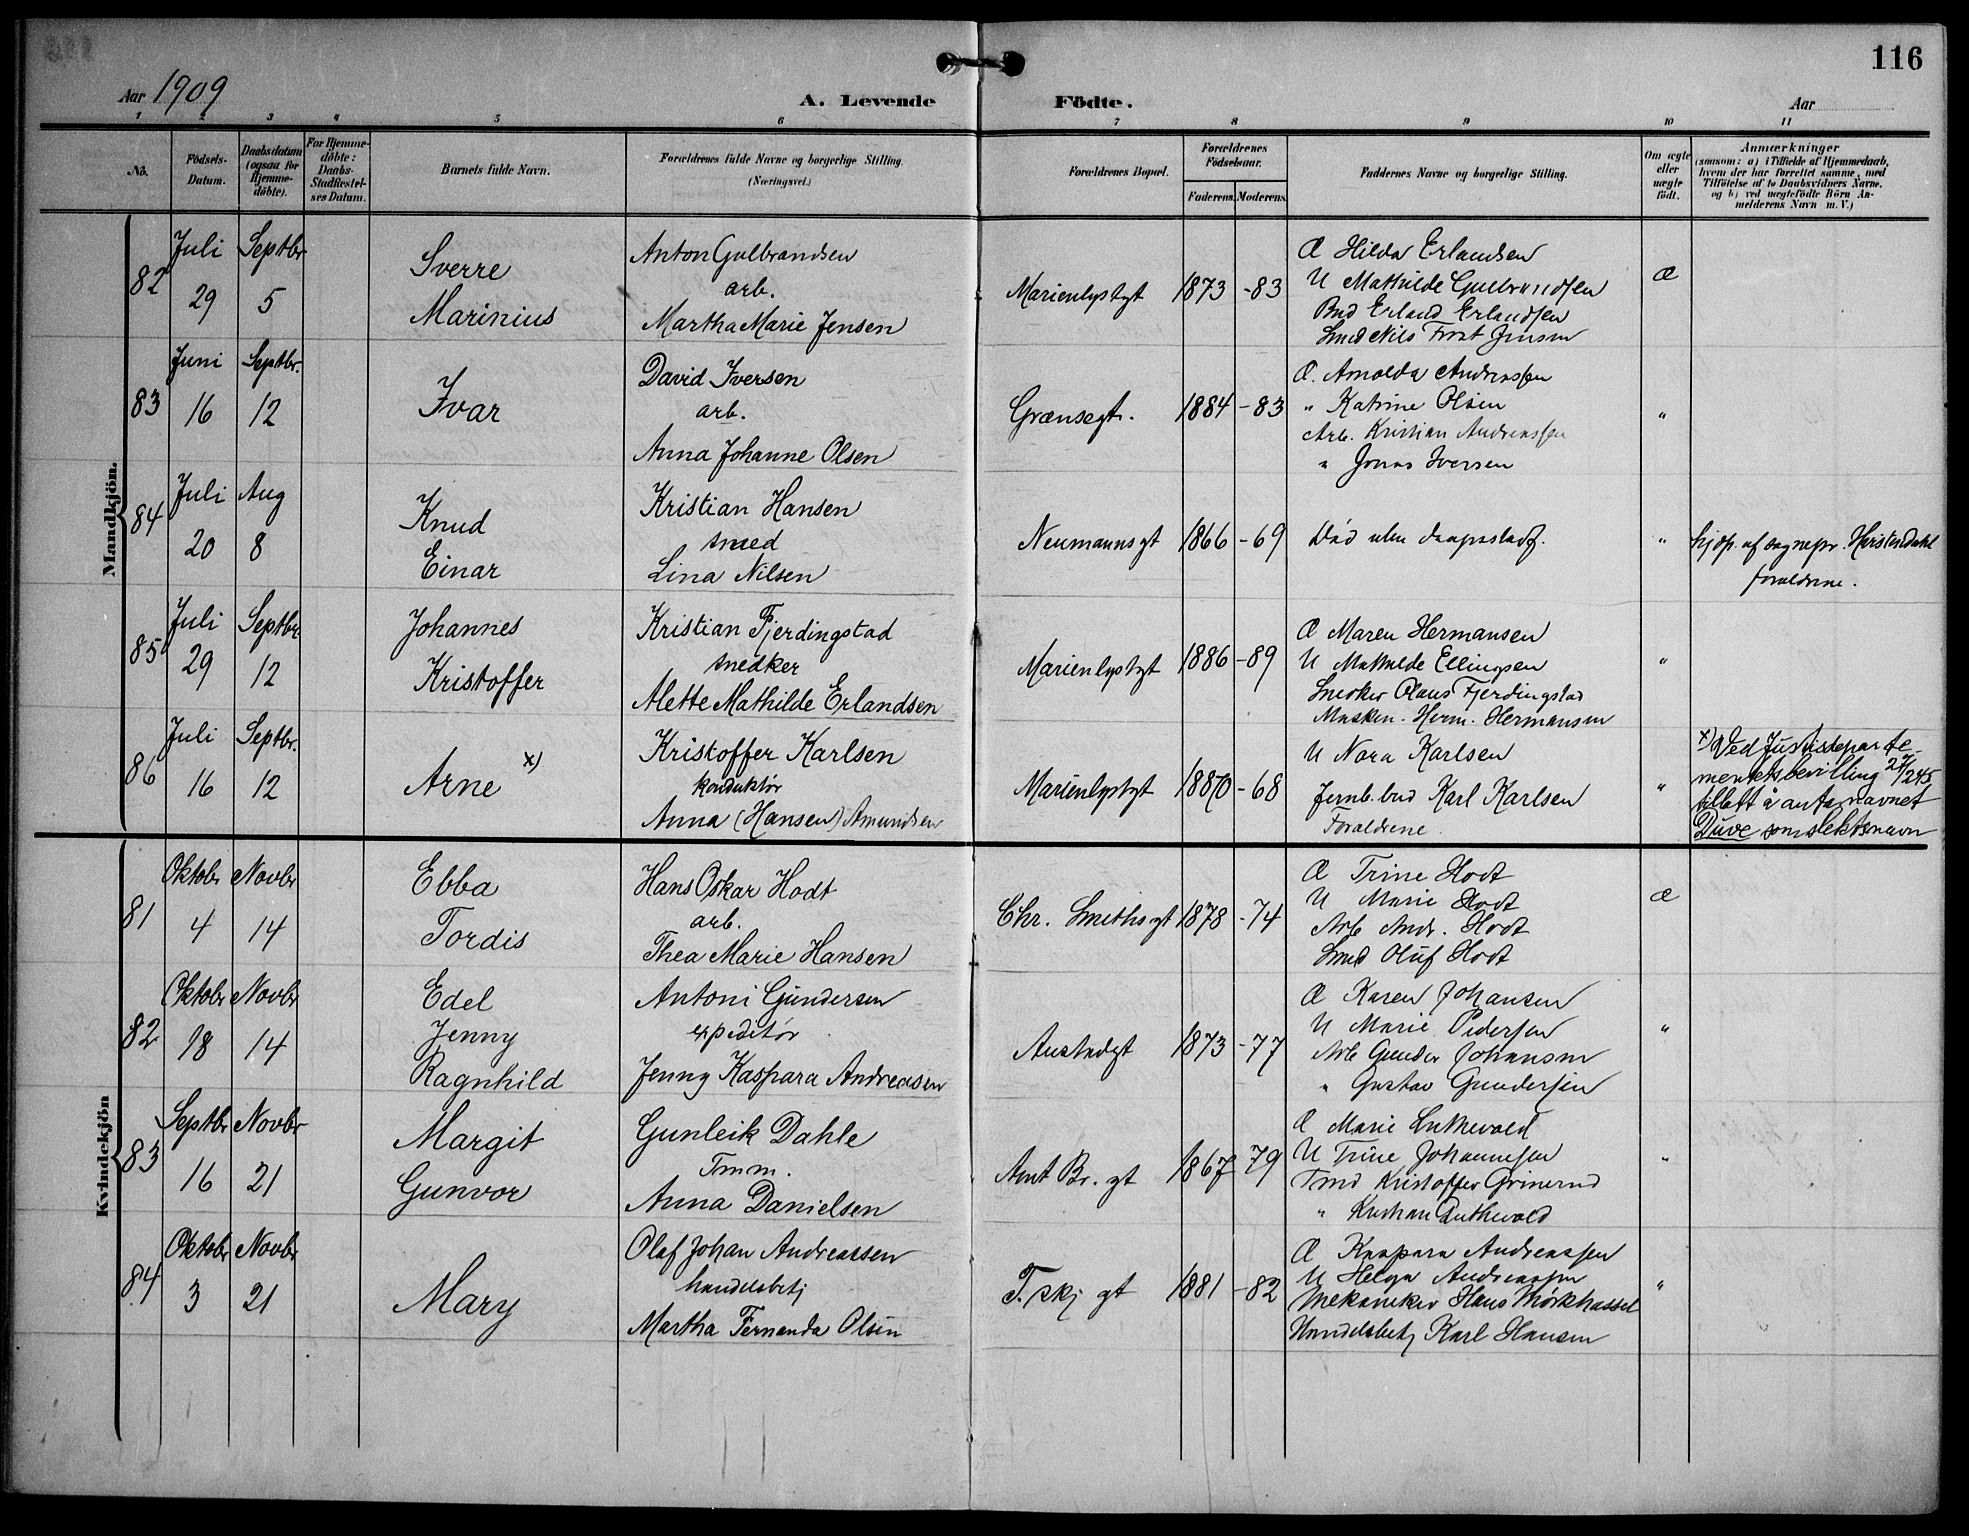 116
Aar 1909
A. Levende Födte.
Aar
1 2 3 4 5 6 7 8 9 10 11
No.
Födsels-Datum.
Daabsdatum (ogsaa for Hjemme-döbte).
For Hjemme-döbte: Daabs-Stadfæstel-ses Datum.
Barnets fulde Navn.
Forældrenes fulde Navne og borgerlige Stilling.
(Næringsvei.)
Forældrenes Bopæl.
Forældrenes Födselsaar.
Faderens. Moderens.
Faddernes Navne og borgerlige Stilling.
Om ægte eller uægte födt.
Anmærkninger
(saasom: a) i Tilfælde af Hjemmedaab, hvem der har forrettet samme, med Tilföielse af to Daabsvidners Navne. og b) ved uægtefödte Börn An-melderens Navn m. V.)
Mandkjön.
82
Juli 29
Septbr 5
Sverre
Marinius
Anton Gulbrandsen
arb.
Martha Marie Jensen
Marienlystgt
1873 -83
Æ Hilda Erlandsen
U Mathilde Gulbrandsen
Bud Erland Erlandsen
Smed Nils Jensen
Æ
83
Juni 16
Septbr. 12
Ivar
David Iversen
arb.
Anna Johanne Olsen
Grænsegt.
1884 -83
Æ. Arnolda Andreassen
" Katrine Olsen
Arb. Kristian Andreassen
" Jonas Iversen
"
84
Juli 20
Aug 8
Knud
Einar
Kristian Hansen
smed
Lina Nilsen
Neumannsgt
1866 -69
Död uden daapsstadf.
"
hjdp. af sognepr.
forældrene.
85
Juli 29
Septbr 12
Johannes
Kristoffer
Kristian Fjerdingstad
snedker
Alette Mathilde Erlandsen
Marienlystgt
1886 -89
Æ Maren Hermansen
U Mathilde Ellingsen
Snedker Olaus Fjerdingstad
Maskin. Herm. Hermansen
"
86
Juli 16
Septbr. 12
Arne x)
Kristoffer Karlsen
konduktör
Anna (Hansen) Amundsen
Marienlystgt
1870 -68
U Nora Karlsen
Jernb. bud Karl Karlsen
Forældrene
"
x) Ved Justisdeparte-
mentets bevilling
tillatt å anta navnet
Duve som slektsnavn
Kvindekjön
81
Oktobr 4
Novbr 14
Ebba
Tordis
Hans Oskar Hodt
arb.
Thea Marie Hansen
Chr. Smithsgt
1878 -74
Æ Trine Hodt
U Marie Hodt
Arb Andr. Hodt
Smed Oluf Hodt
Æ
82
Oktobr 18
Novbr 14
Edel
Jenny
Ragnhild
Antoni Gundersen
expeditör
Jenny Kaspara Andreasen
Austadgt
1873 -77
Æ Karen Johansen
U Marie Pedersen
Arb Gunder Johansen
" Gustav Gundersen
"
83
Septbr 16
Novbr 21
Margit
Gunvor
Gunleik Dahle
Tmm.
Anna Danielsen
Amt Br. gt
1867 79
Æ Marie
U Trine Johannesen
Tmd Kristoffer
" Kristian
"
84
Oktobr 3
Novbr 21
Mary
Olaf Johan Andreassen
handelsbetj
Martha Fernanda Olsen
T. skj gt
1881 -82
Æ Kaspara Andreassen
U Helga Andreassen
Mekaniker Hans Mörkhassel
Handelsbetj Karl Hansen
"